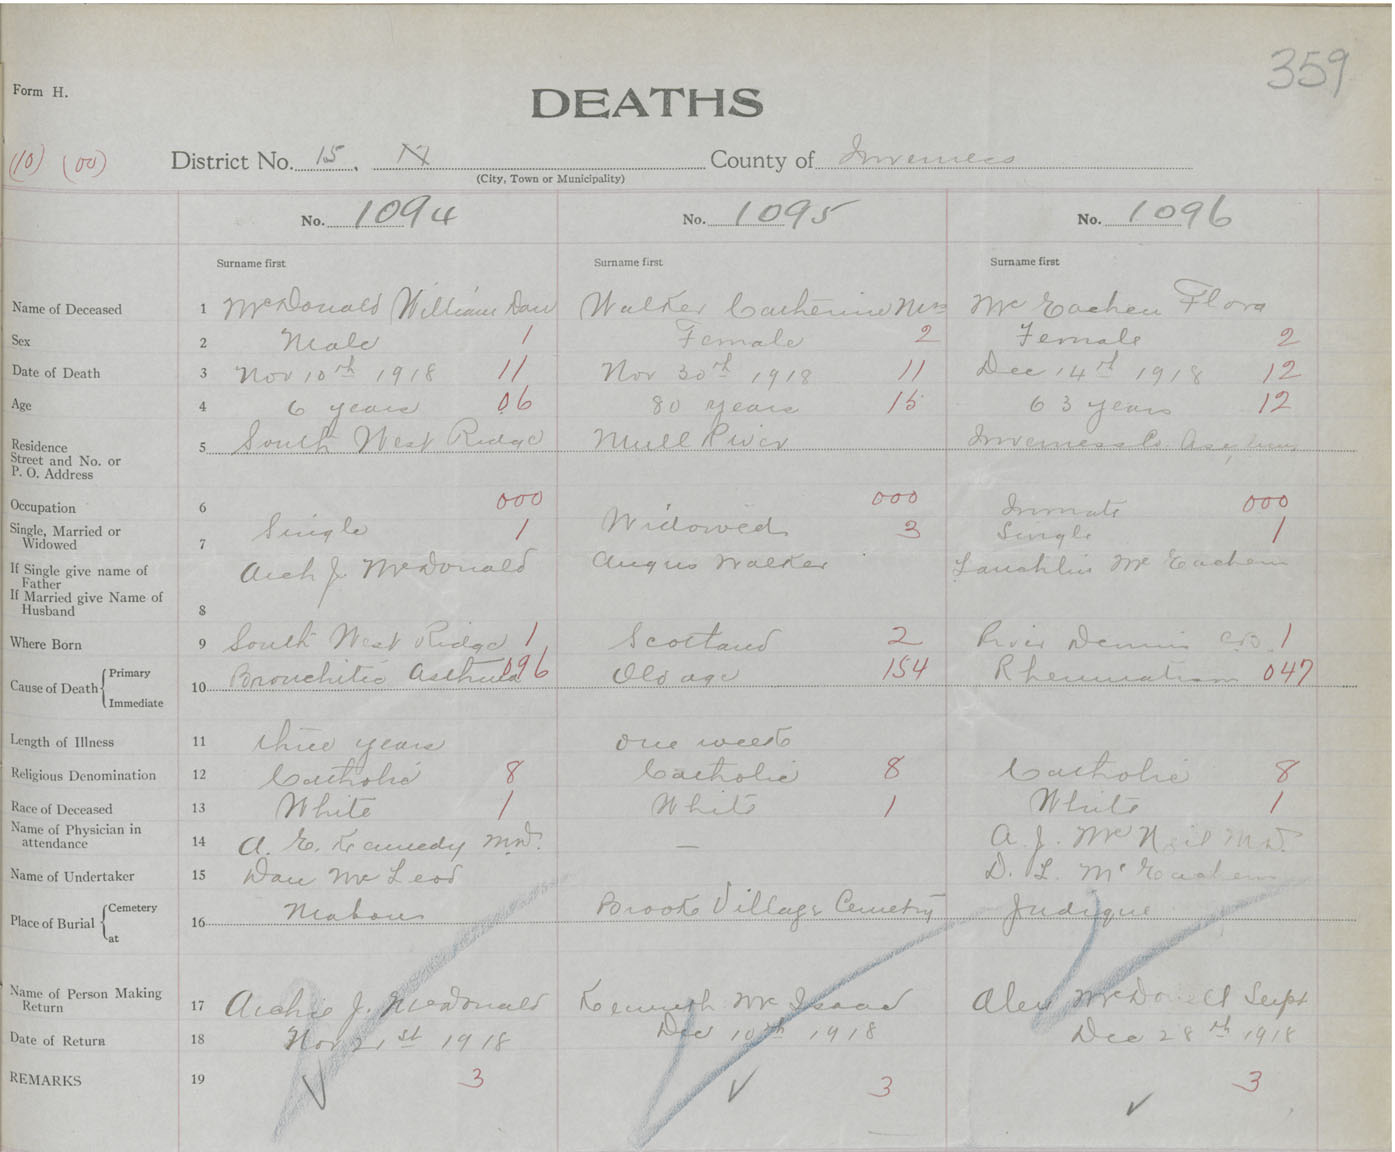 359
Form H.
DEATHS
(10) (00)
District No. 15, N County of Inverness
(City, Town or Municipality)
No. 1094 No. 1095 No. 1096
Surname first Surname first Surname first
Name of Deceased 1 McDonald William Dan Walker Catherine Mrs McEachen Flora
Sex 2 Male 1 Female 2 Female 2
Date of Death 3 Nov 10th 1918 11 Nov 30th 1918 11 Dec 14th 1918 12
Age 4 6 years 06 80 years 15 63 years 12
Residence
Street and No. or
P. O. Address 5 South West Ridge Mull River Inverness Co. Asylum
Occupation 6 000 000 Inmate 000
Single, Married or
Widowed 7 Single 1 Widowed 3 Single 1
If Single give name of
Father
If Married give Name of
Husband 8 Arch J. McDonald Angus Walker Lauchlin McEachern
Where Born 9 South West Ridge 1 Scotland 2 River Dennis C.B. 1
Cause of Death { Primary
Immediate 10 Bronchitic Asthma 096 Old age 154 Rheumatism 047
Length of Illness 11 three years one week
Religious Denomination 12 Catholic 8 Catholic 8 Catholic 8
Race of Deceased 13 White 1 White 1 White 1
Name of Physician in
attendance 14 A. E. Kennedy M.D. — A. J. McNeil M.D.
Name of Undertaker 15 Dan McLeod D. L. McEachern
Place of Burial { Cemetery
at 16 Mabou Brook Village Cemetry Judique
Name of Person Making
Return 17 Archie J. McDonald Kenneth McIsaac Alex McDonell Supt
Date of Return 18 Nov 21st 1918 Dec 10th 1918 Dec 28th 1918
REMARKS 19 3 3 3